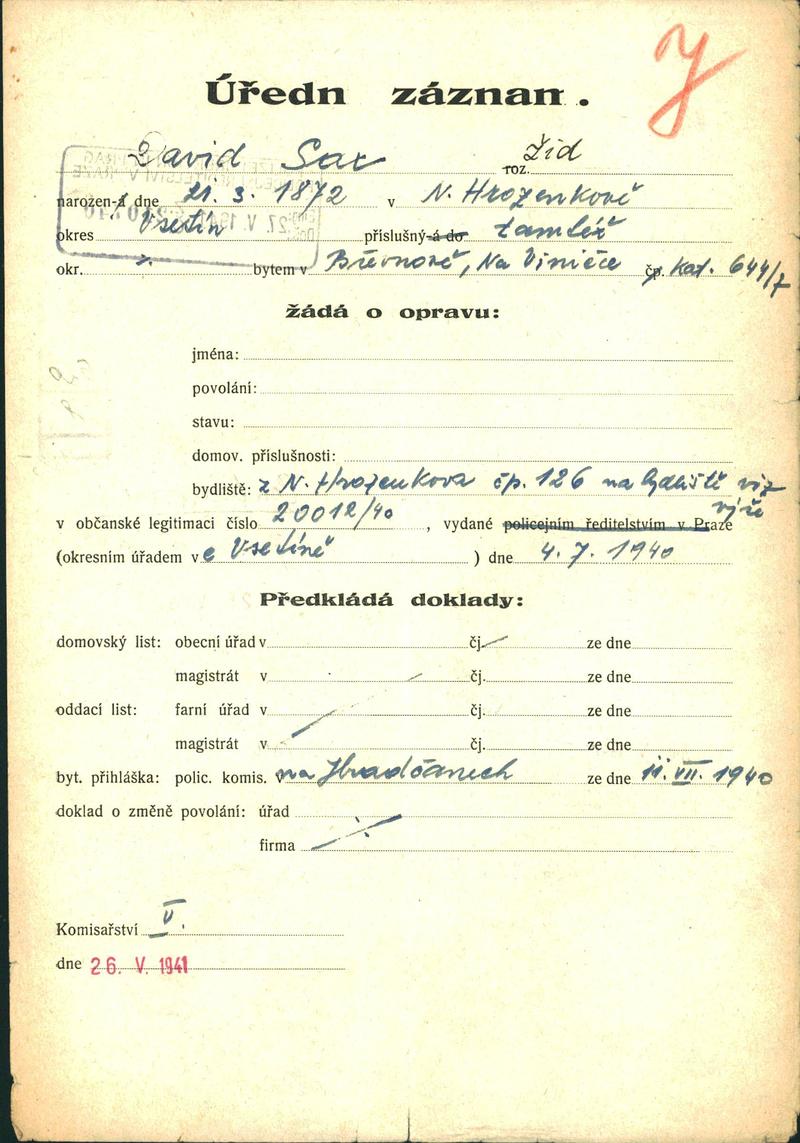 J
Úředn záznam.
David Sax roz. Žid
narozen-á dne 21. 3. 1872 v N. Hrozenkově
okres Vsetín příslušný-á do tamtéž
okr. bytem v Břevnově, Na Viničce čp. kat. 644/7
žádá o opravu:
jména:
povolání:
stavu:
domov. příslušnosti:
bydliště: z N. Hrozenkova čp. 126 na bydliště viz
výše
v občanské legitimaci číslo 20012/40, vydané policejním ředitelstvím v Praze
(okresním úřadem ve Vsetíně) dne 4. 7. 1940
Předkládá doklady:
domovský list: obecní úřad v čj. ze dne
magistrát v čj. ze dne
oddací list: farní úřad v čj. ze dne
magistrát v čj. ze dne
byt. přihláška: polic. komis. na Hradčanech ze dne 11. VII. 1940
doklad o změně povolání: úřad
firma
Komisařství V.
dne 26. V. 1941